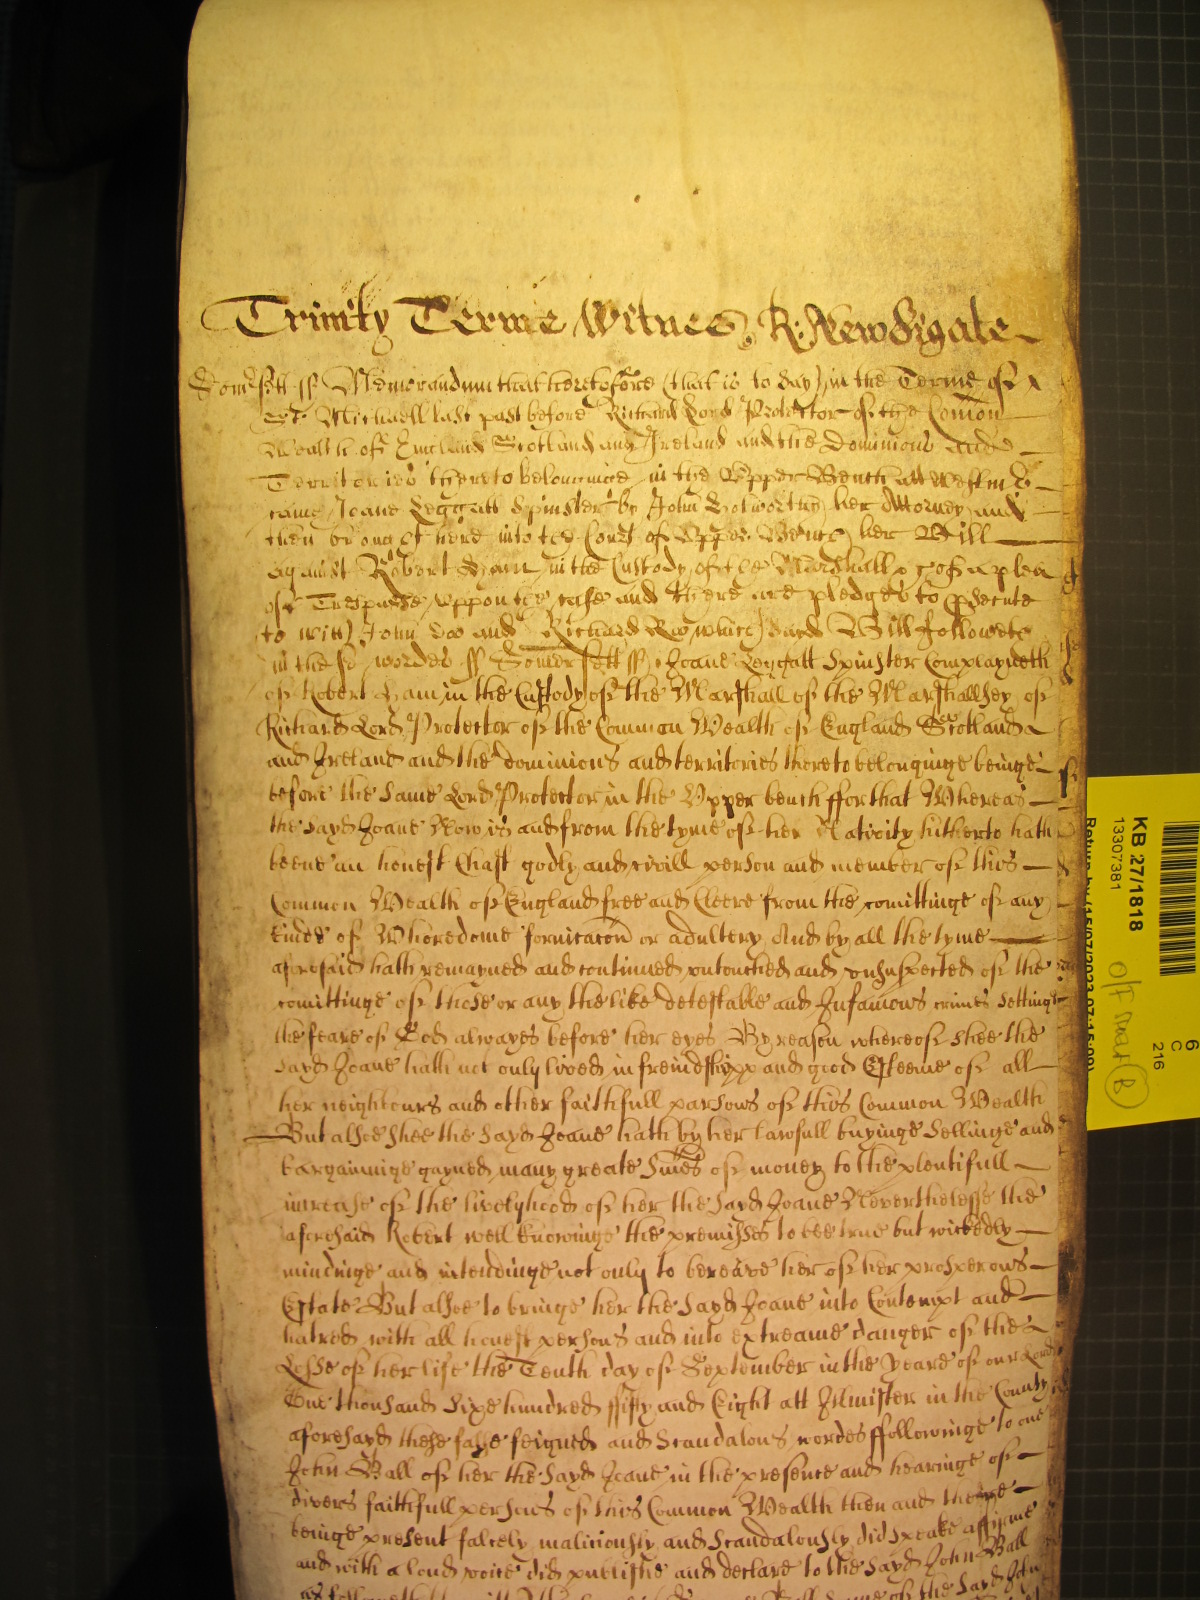 Trinity Terme Witnes R: Newdigate
Somsett ss Memorandum that heretofore (that is to say) in the Terme of
St. Michaell last past before Richard Lord Protector of the Comon
Wealth of England Scotland and Ireland and the Dominions and
Territories thereto belonginge in the Upper Bench att Westmr
came Joane Leggatt Spinster by John her Attorney and
then brought here into the Court of Upper Bench her Bill
against Robert in the Custody of the Marshall &c of a plea
of Trespasse uppon the case and there are pledges to psecute
to witt John Doo and Richard Roo which sayd Bill followeth
in these wordes ss Somersett ss Joane Leggatt Spinster Complayneth
of Robert in the Custody of the Marshall of the Marshallsey of
Richard Lord Protector of the Common Wealth of England Scotland
and Ireland and the dominions and territories thereto belonginge beinge
before the same Lord Protector in the Upper bench ffor that Whereas
the sayd Joane Now is and from the tyme of her Nativity hitherto hath
beene an honest Chast godly and civill person and member of this
Common Wealth of England free and Cleere from the comittinge of any
kinde of Whoredome fornicacon or adultery And by all the tyme
aforesaid hath remayned and continued untouched and unsuspected of the
comittinge of those or any the like detestable and Infamous crimes settinge
the feare of God alwayes before her eyes By reason whereof shee the
sayd Joane hath not only lived in freindshipp and good Esteeme of all
her neighbours and other faithfull parsons of this Common Wealth
But alsoe shee the sayd Joane hath by her lawfull buyinge sellinge and
bargaininge gayned many greate Sumes of money to the plentifull
increase of the livelyhood of her the sayd Joane Neverthelesse the
aforesaid Robert well knowinge the premisses to bee true but wickedly
mindinge and intendinge not only to bereave her of her prosperous
Estate But alsoe to bringe her the sayd Joane into Contempt and
hatred with all honest persons and into extreame danger of the
Losse of her life the Tenth day of September in the yeare of our Lord
One thousand Sixe hundred ffifty and Eight att Ilmister in the County
aforesayd these false feigned and Scandalous wordes ffollowinge to one
John Ball of her the sayd Joane in the presence and hearinge of
divers faithfull persons of this Common Wealth then and there
beinge present falcely maliciously and Scandalously did speake affirme
and with a loud voice did publishe and declare to the sayd John Ball
of the sayd John
KB 27/1818
13307381
6
C
216